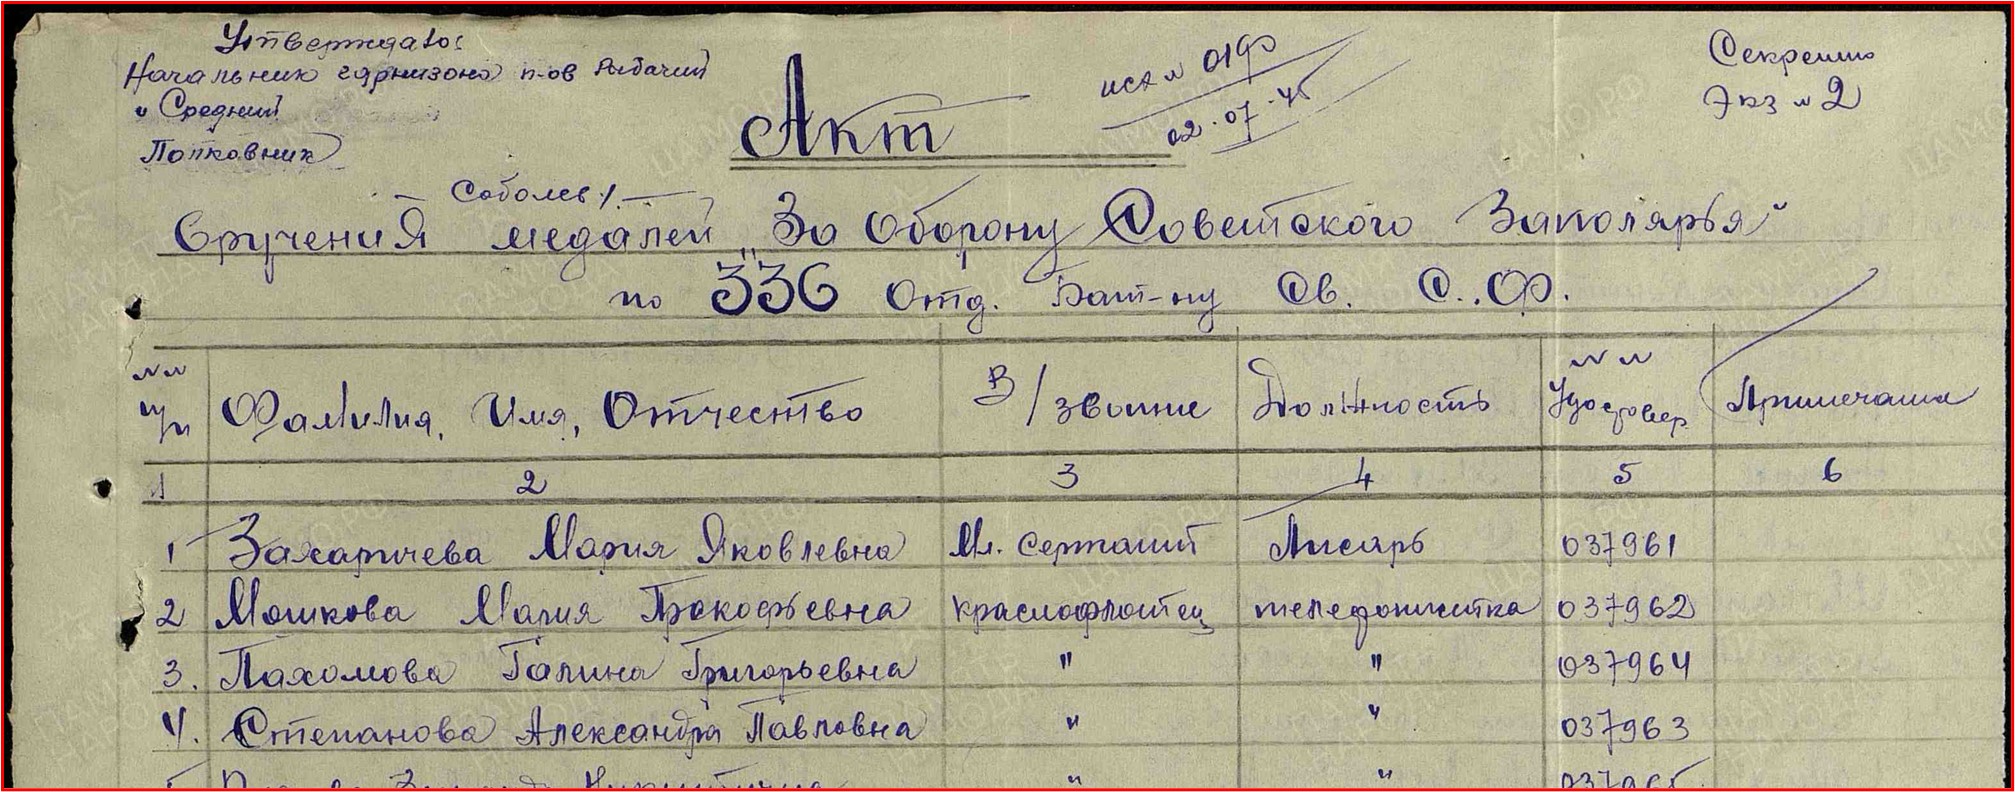 Утверждаю:
Начальник гарнизона п-ов Рыбачий
и Средний
Полковник
Соболев /.
исх № 0190
02.07.45
Секретно
Экз № 2
Акт
Вручения медалей „За Оборону Советского Заполярья"
по 336 Отд. Бат-ну Св. С.Ф.
№№ п/п Фамилия, Имя, Отчество В/звание Должность №№ Удостовер Примечание
1 2 3 4 5 6
1 Захаричева Мария Яковлевна Мл. Сержант Писарь 037961
2 Мошкова Мария Прокофьевна краснофлотец телефонистка 037962
3. Пахомова Галина Григорьевна " " 037964
4. Степанова Александра Павловна " " 037963
" " 037965